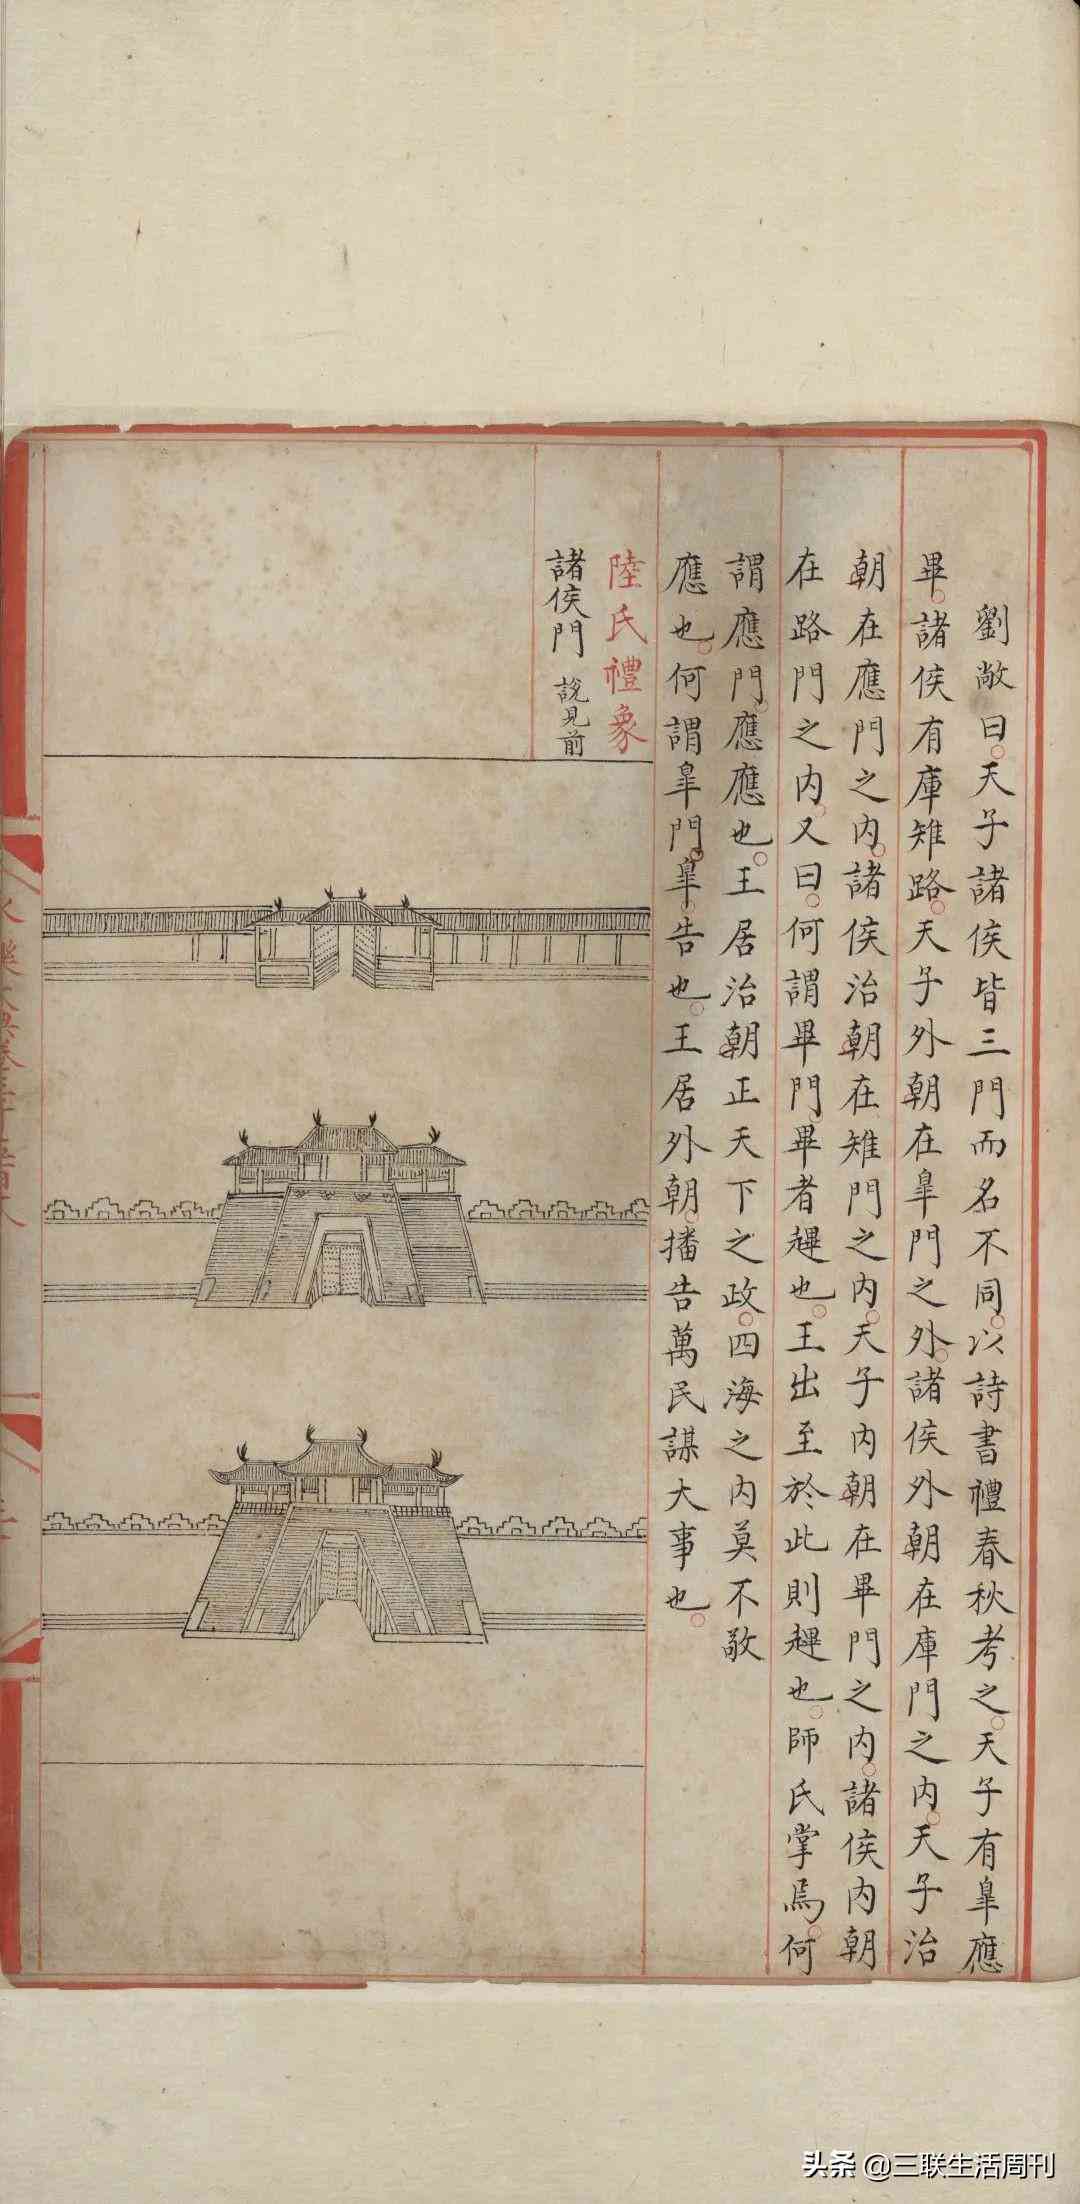 劉敞曰天子諸侯皆三門而名不同以詩書禮春秋考之天子有皐應
畢諸侯有庫雉路天子外朝在皐門之外諸侯外朝在庫門之内天子治
朝在應門之内諸侯治朝在雉門之内天子内朝在畢門之内諸侯内朝
在路門之内又曰何謂畢門畢者趩也王出至於此則趩也師氏掌焉何
謂應門應應也王居治朝正天下之政四海之内莫不敬
應也何謂皐門皐告也王居外朝播告萬民謀大事也
陸氏禮象
諸侯門 說見前
头条 @三联生活周刊